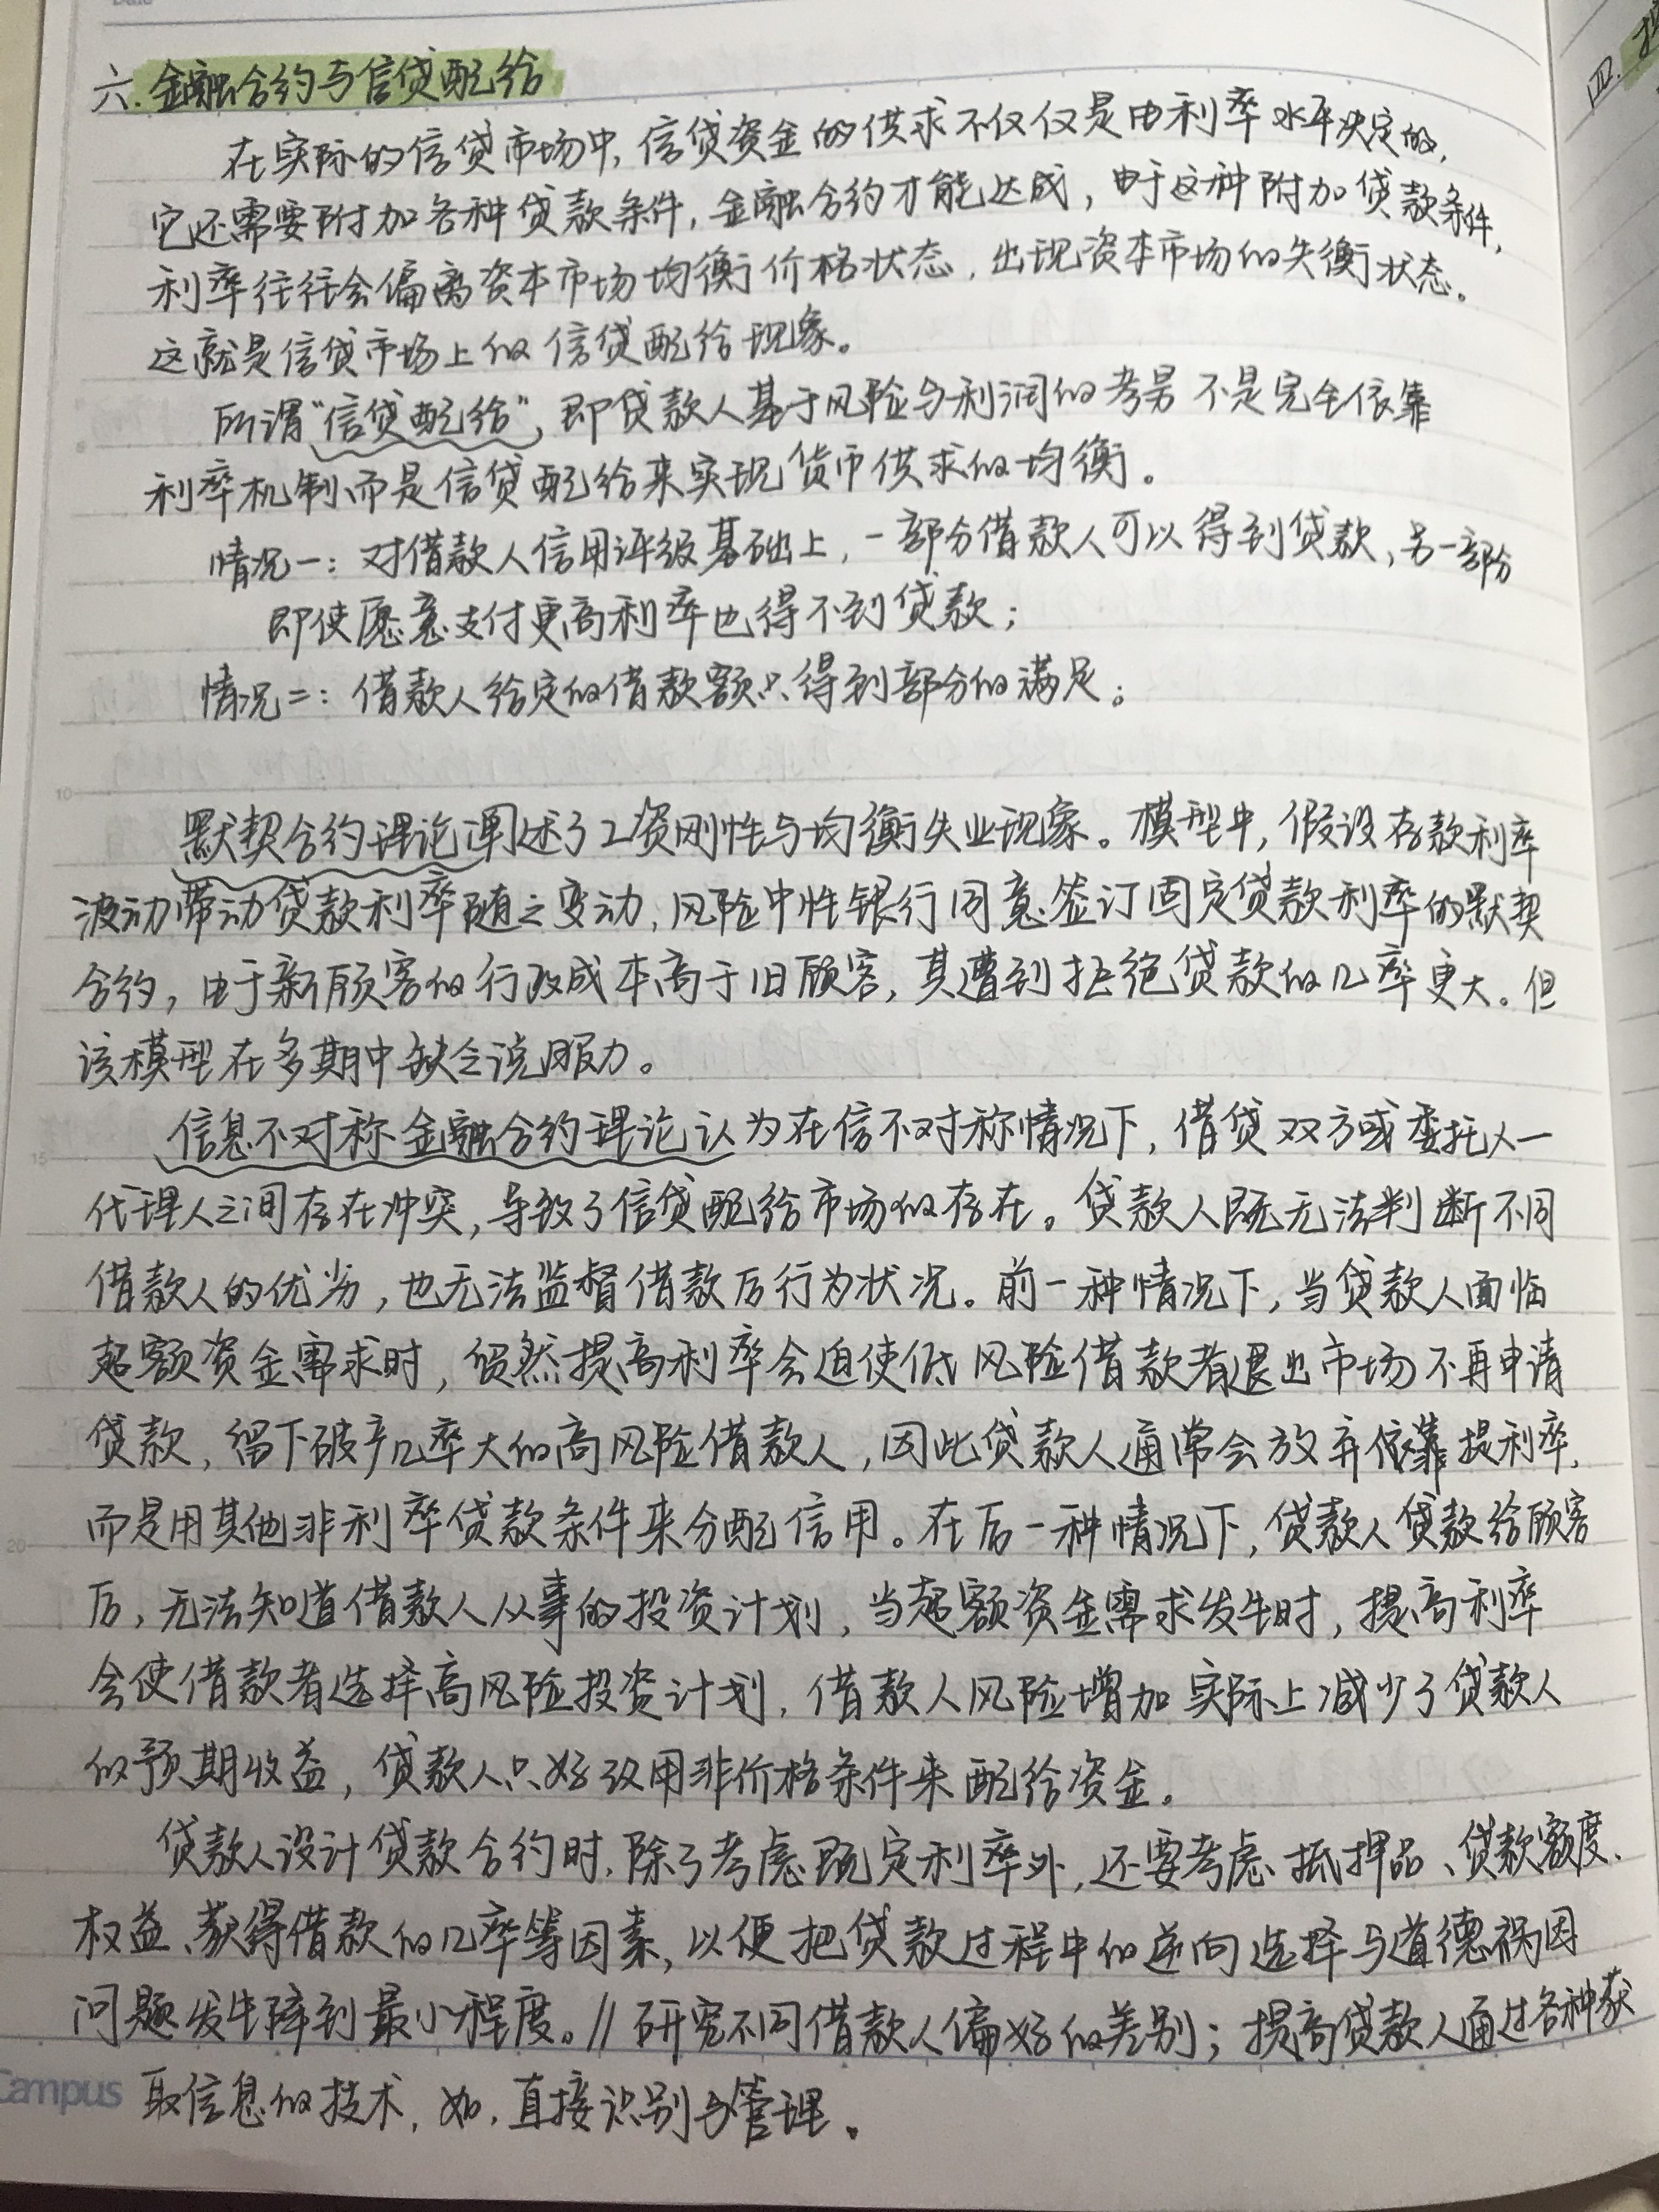 六.金融合约与信贷配给
在实际的信贷市场中,信贷资金的供求不仅仅是由利率水平决定的,
它还需要附加各种贷款条件,金融合约才能达成,由于这种附加贷款条件,
利率往往会偏离资本市场均衡价格状态,出现资本市场的失衡状态。
这就是信贷市场上的信贷配给现象。
所谓“信贷配给”,即贷款人基于风险与利润的考虑 不是完全依靠
利率机制而是信贷配给来实现货币供求的均衡。
情况一:对借款人信用评级基础上,一部分借款人可以得到贷款,另一部分
即使愿意支付更高利率也得不到贷款;
情况二:借款人给定的借款额只得到部分的满足;
10
默契合约理论阐述了工资刚性与均衡失业现象。模型中,假设存款利率
波动带动贷款利率随之变动,风险中性银行同意签订固定贷款利率的默契
合约,由于新顾客的行政成本高于旧顾客,其遭到拒绝贷款的几率更大。但
该模型在多期中缺乏说服力。
信息不对称金融合约理论认为在信不对称情况下,借贷双方或委托人—
15
代理人之间存在冲突,导致了信贷配给市场的存在。贷款人既无法判断不同
借款人的优劣,也无法监督借款后行为状况。前一种情况下,当贷款人面临
超额资金需求时,贸然提高利率会迫使低风险借款者退出市场不再申请
贷款,留下破产几率大的高风险借款人,因此贷款人通常会放弃依靠提利率,
而是用其他非利率贷款条件来分配信用。在后一种情况下,贷款人贷款给顾客
20
后,无法知道借款人从事的投资计划,当超额资金需求发生时,提高利率
会使借款者选择高风险投资计划,借款人风险增加实际上减少了贷款人
的预期收益,贷款人只好改用非价格条件来配给资金。
贷款人设计贷款合约时,除了考虑既定利率外,还要考虑抵押品、贷款额度、
权益、获得借款的几率等因素,以便把贷款过程中的逆向选择与道德祸因
问题发生降到最小程度。// 研究不同借款人偏好的差别;提高贷款人通过各种获
Campus 取信息的技术,如,直接识别与管理。
四.